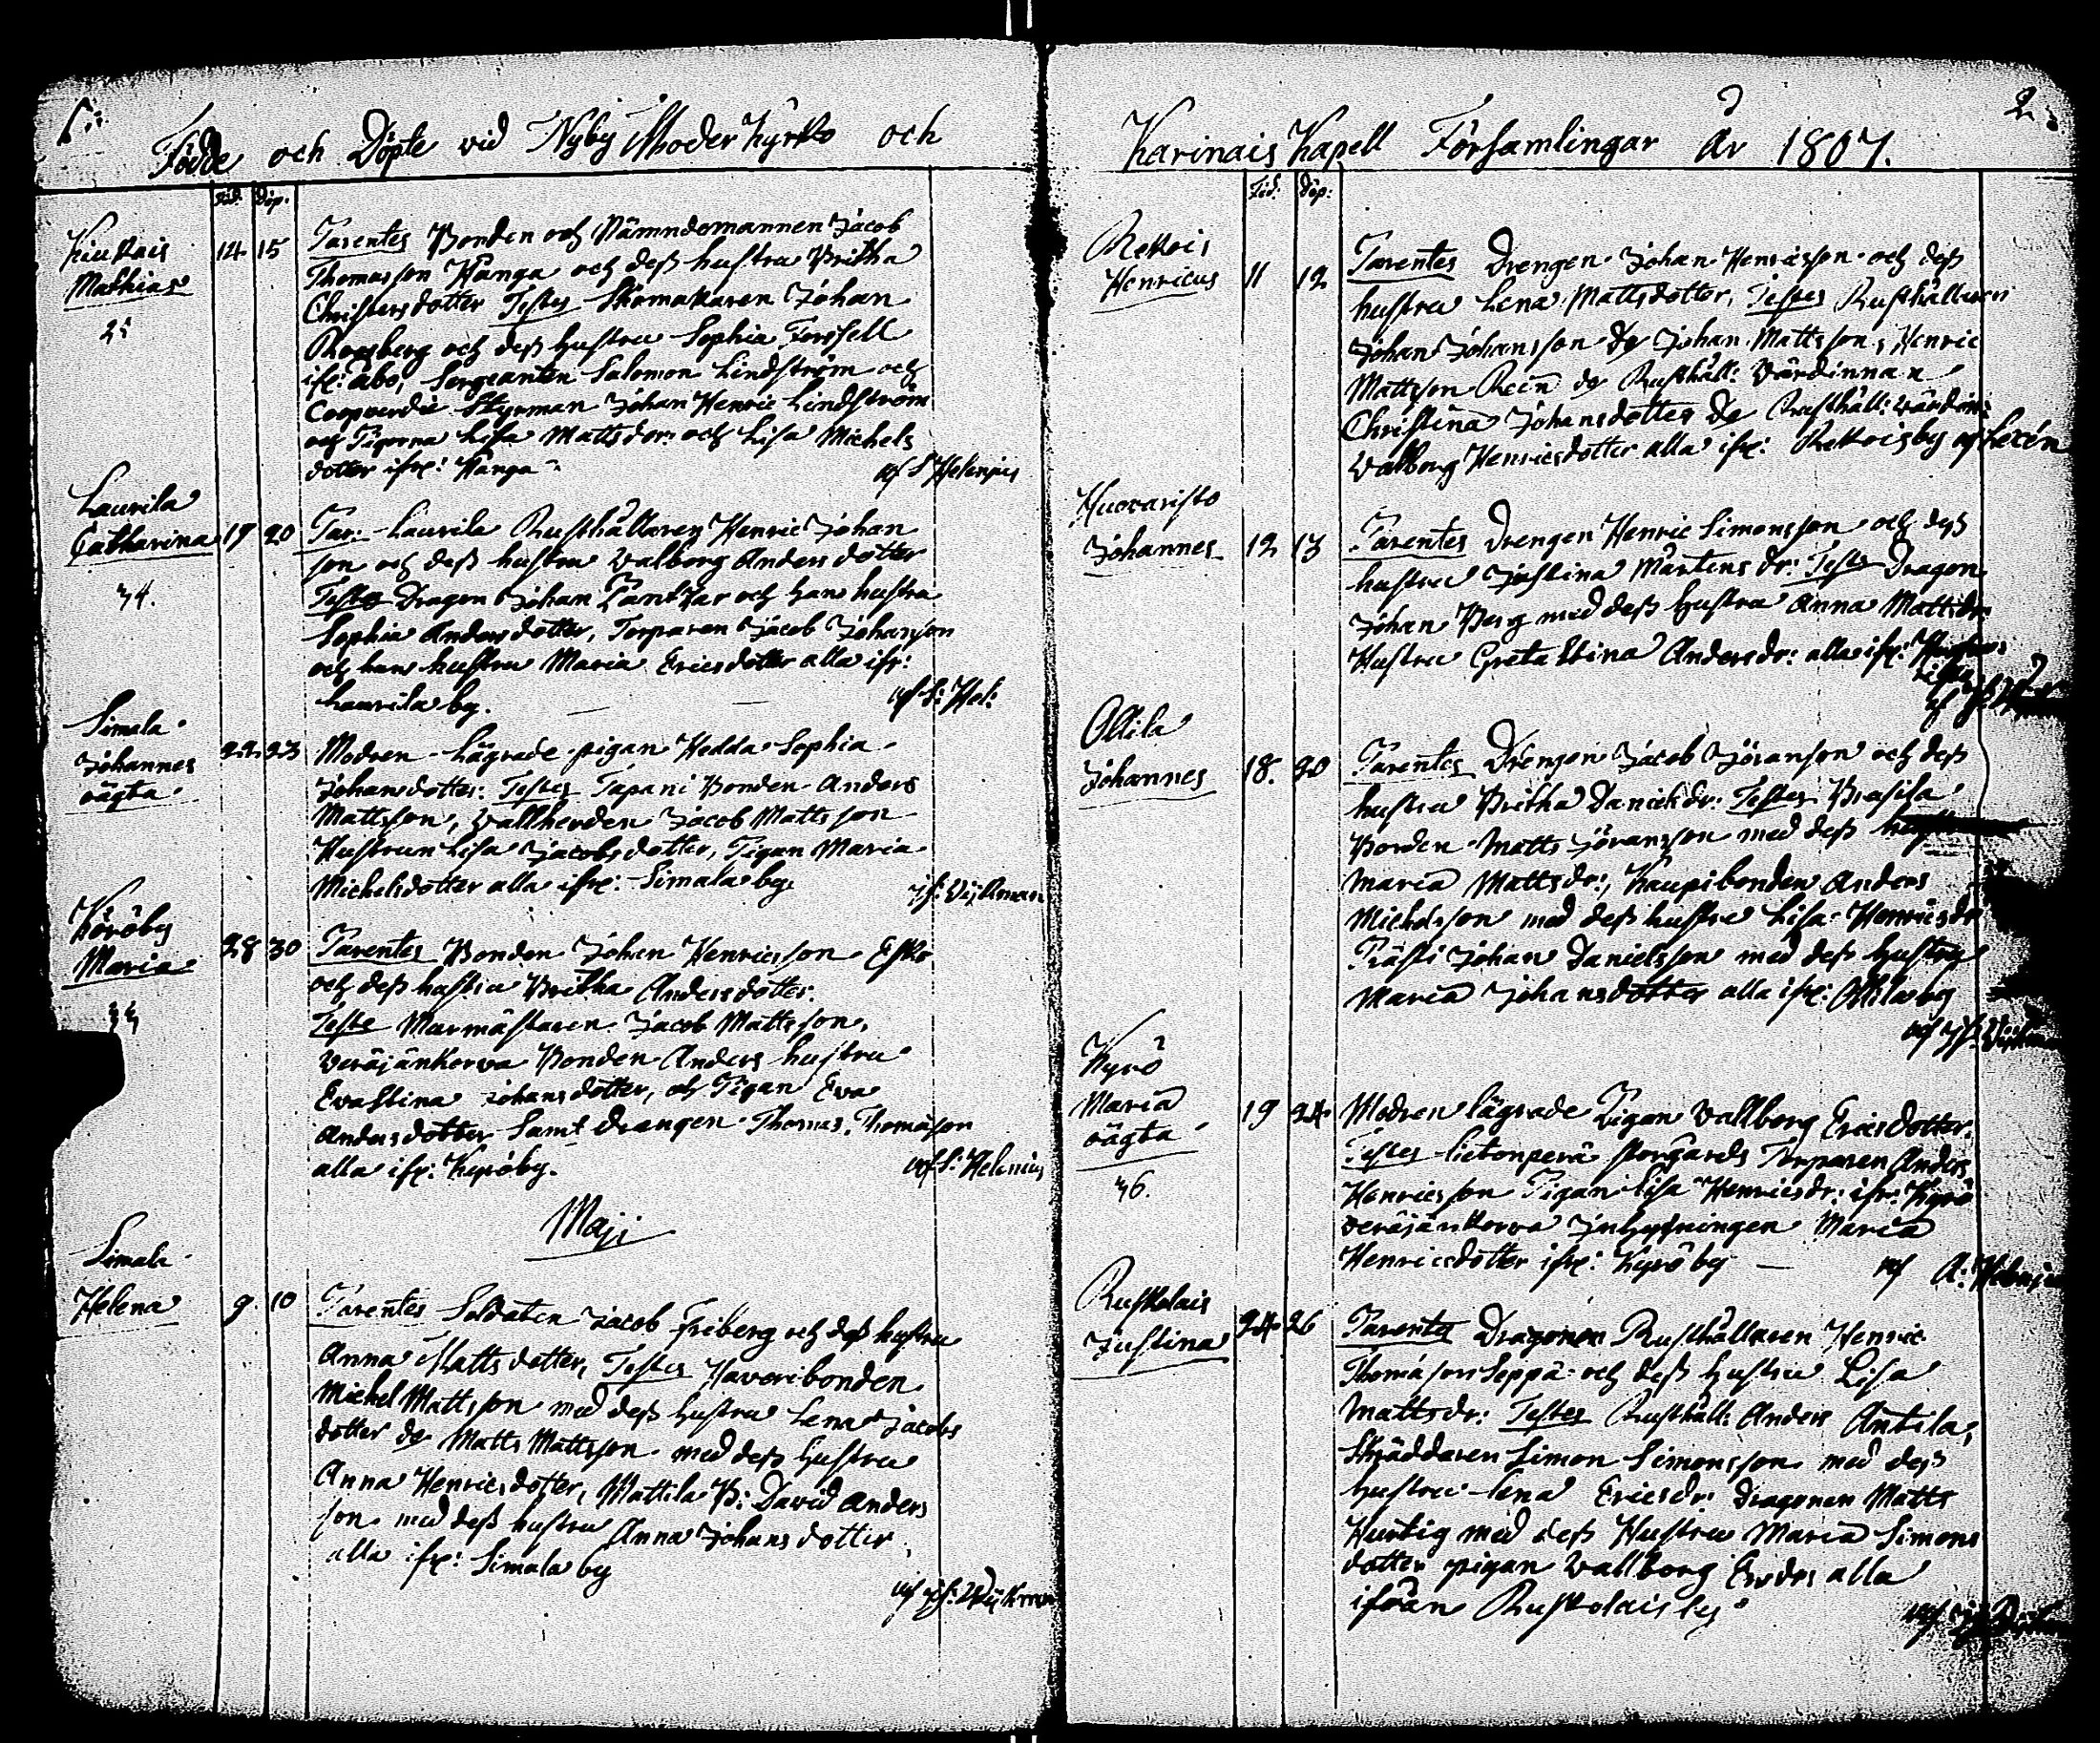 Födde och Döpte vid Nyby Moder Kyrko och
Föd. Döp.
Kiukais
Mathias
14 15
Parentes Bonden och Nämndemannen Jacob
Thomasson Hånga och dess hustru Britha
Christersdotter Testes Skomakaren Johan
Rogsberg och dess hustru Sophia Forssell
ifr: Åbo, Sergeanten Salomon Lindström och
Styrman Johan Henric Lindström
och Pigorna Lisa Mattsdor: och Lisa Michels
dotter ifr: Hånga
af S Helenius
Laurila
Catharina
34.
19 20
Par: Laurila Rusthållaren Henric Johan
son och dess hustru Walborg Anders dotter
Testes Dragon Johan Pantzar och hans hustru
Sophia Andersdotter, Torparen Jacob Johansson
och hans hustru Maria Ericsdotter alla ifr:
Laurila by.
af S: Hel:
Simala
Johannes
oägta
22 23
Modren Lägrade pigan Hedda Sophia
Johansdotter. Testes Tapani Bonden Anders
Mattsson, wallherden Jacob Mattsson
Hustrun Lisa Jacobsdotter, Pigan Maria
Michelsdotter alla ifr: Simala by.
Köröby
Maria
28 30
Parentes Bonden Johan Henricsson Esko
och dess hustru Britha Andersdotter.
Teste Murmästaren Jacob Mattsson,
Veräjänkorva Bonden Anders hustru
Evastina Johansdotter, och Pigan Eva
Andersdotter Samt drengen Thomas Thomasson
alla ifr: Kyröby.
af S: Helenius
Maji
Simala
Helena
9 10
Parentes Soldaten Jacob Friberg och dess hustru
Anna Mattsdotter, Testes Haveribonden
Michel Mattsson med dess hustru Lena Jacobs
dotter do Matts Mattsson med dess hustru
Anna Henricsdotter, Mattila B: David Anders
son med dess hustru Anna Johansdotter
alla ifr: Simala by
Karinais Kapell Församlingar År 1807.
2
Föd. Döp:
Rekois
Henricus
11 12
Parentes Drengen Johan Henricsson och dess
hustru Lena Mattsdotter, Testes Rusthållaren
Johan Johansson do Johan Mattsson, Henric
Mattsson Rein do Rusthåll: Värdinnan
Christina Johansdotter do Rusthåll: värdin:
Walborg Henricsdotter alla ifr: Rekoisby af Lexén
Huovaristo
Johannes
12 13
Parentes Drengen Henric Simonsson och dess
hustru Justina Mårtens dr: Testes Dragon
Johan Berg med dess hustru Anna Mattsdr:
Hustru Greta Stina Andersdr: alla ifr:
Ollila
Johannes
18. 20
Parentes Drengen Jacob Jöranson och dess
hustru Britha Danielsdr: Testes
Bonden Matts Jöransson med dess
Maria Mattsdr:, Kaupibonden Anders
Michelsson med dess hustru Lisa Henricsdr
Prästi Johan Danielsson med dess hustru
Maria Johansdotter alla ifr: Ollila by
Kyrö
Maria
oägta
36.
19 24
Modren lägrade Pigan Wallborg Ericsdotter.
Testes Lietonperä storgårds Torparen Anders
Henricsson Pigan Lisa Henricsdr: ifr: Kyrö
veräjänkorva Inhysningen Maria
Henricsdotter ifr: Kyröby
af A: Helenius
Ruskolais
Justina
24 26
Parentes Dragonen Rusthållaren Henric
Thomasson Seppä och dess hustru Lisa
Mattsdr: Testes Rusthåll: Anders Antila,
Skräddaren Simon Simonsson med dess
hustru Lena Ericsdr: Dragonen Matts
Hurtig med dess Hustru Maria Simons
dotter pigan Wallborg alla
ifrån Ruskolais by